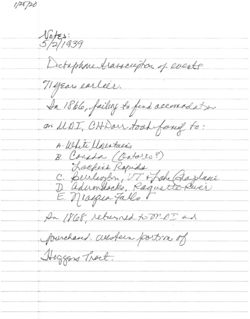 1/25/20
Notes:
5/2/1939
Dictaphone transcription of events
71 years earlier.
In 1866, failing to find accomodation
on MDI, CH Dorr took family to:
A. White Mountains
B. Canada (Ontario?)
Lachine Rapids
C. Burlington, VT & Lake Champlain
D. Adirondacks, Raquette River
E. Niagara Falls
In 1868, returned to MDI and
purchased western portion of
Higgins Tract.